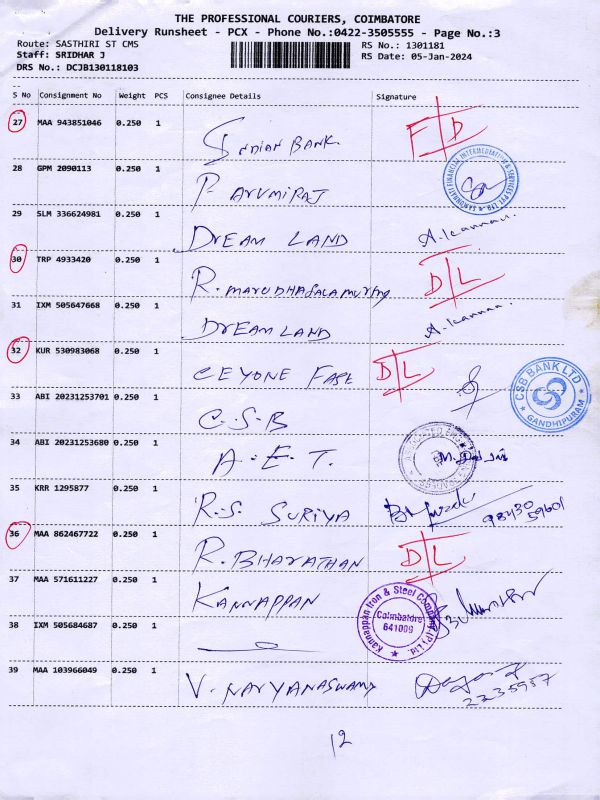 THE PROFESSIONAL COURIERS, COIMBATORE
Delivery Runsheet - PCX - Phone No.:0422-3505555 - Page No.:3
Route: SASTHIRI ST CMS RS No.: 1301181
Staff: SRIDHAR J RS Date: 05-Jan-2024
DRS No.: DCJB130118103
S No Consignment No Weight PCS Consignee Details Signature
27 MAA 943851046 0.250 1 INDIAN BANK F D
28 GPM 2090113 0.250 1 P. ARUMIRAJ
29 SLM 336624981 0.250 1 DREAM LAND A. Kannan.
30 TRP 4933420 0.250 1 R. D L
31 IXM 505647668 0.250 1 DREAM LAND A. Kannan.
32 KUR 530983068 0.250 1 CEYONE D L
33 ABI 20231253701 0.250 1 C.S.B CSB BANK LTD GANDHIPURAM
34 ABI 20231253680 0.250 1 A.E.T.
35 KRR 1295877 0.250 1 R.S. SURIYA 98430 59601
36 MAA 862467722 0.250 1 R. BHARATHAN D L
37 MAA 571611227 0.250 1 KANNAPPAN Kannappan Iron & Steel Company (P) Ltd. Coimbatore 641009
38 IXM 505684687 0.250 1
39 MAA 103966049 0.250 1 V. NARYANASWAMY 2235957
12